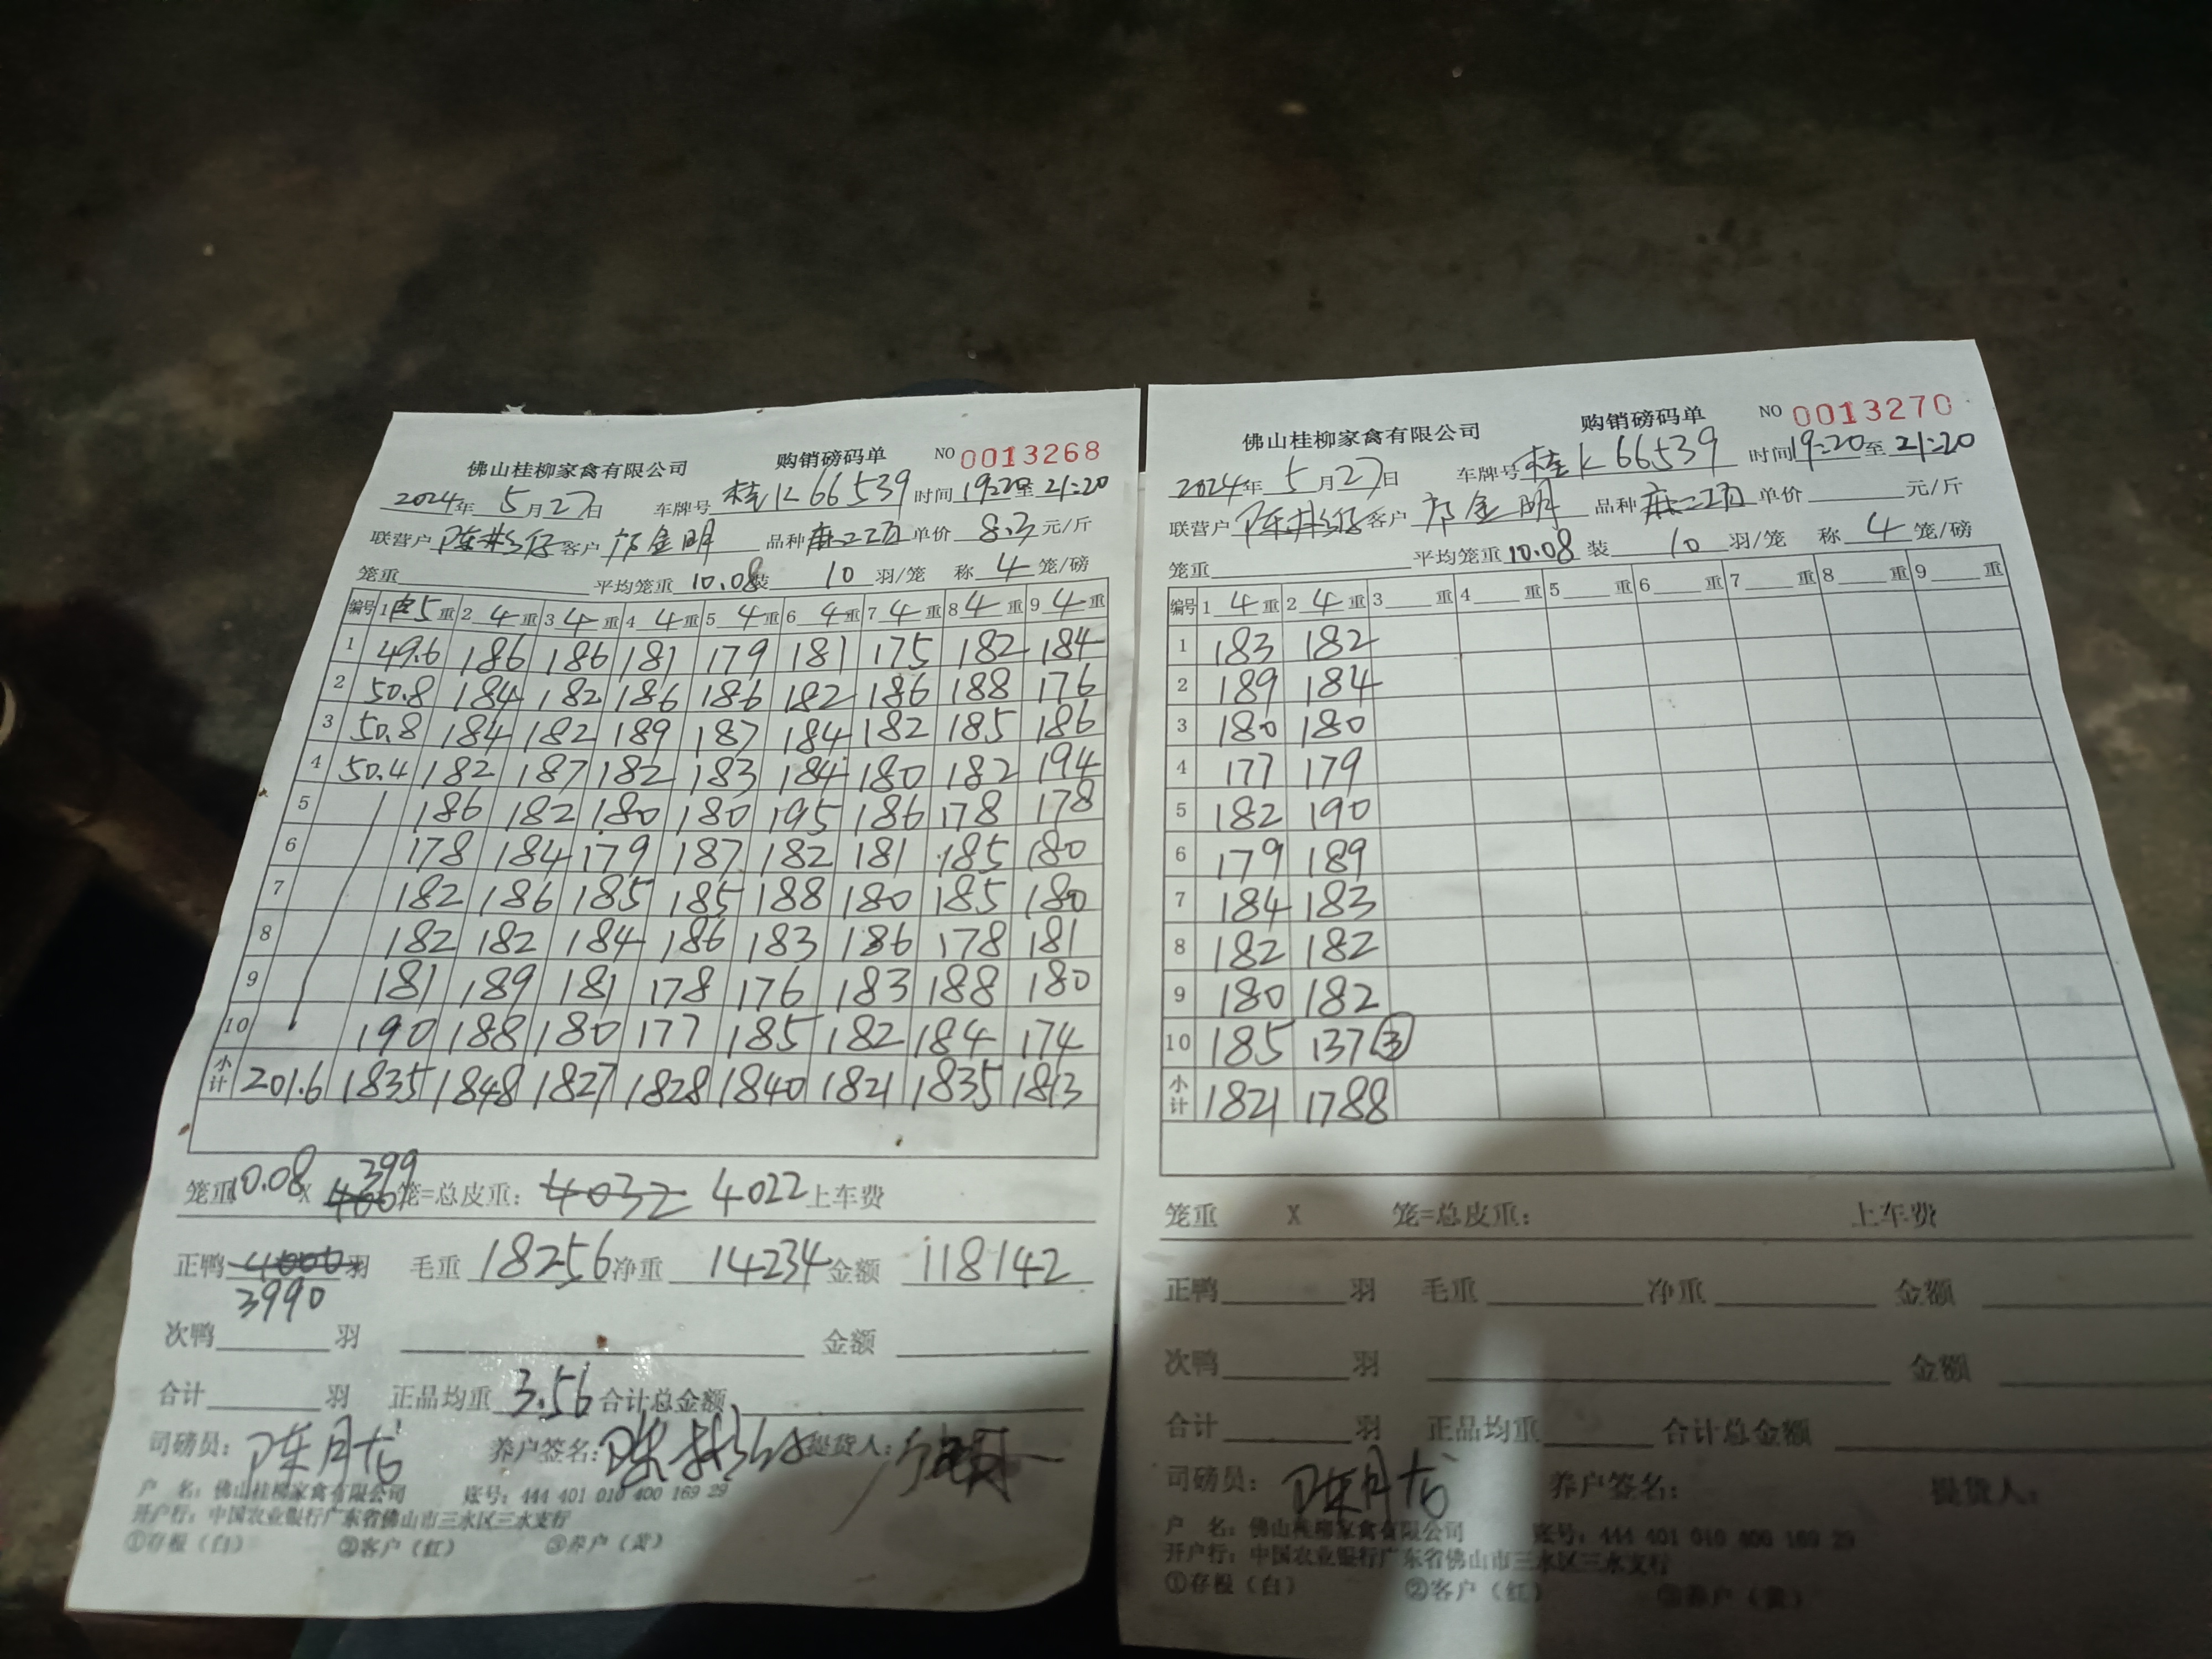 佛山桂柳家禽有限公司 购销磅码单 NO 0013268
2024年 5月27日 车牌号 桂K66539 时间 19:20至 21:20
联营户 客户 邝金明 品种 麻二 单价 8.3 元/斤
笼重 平均笼重 10.08 装 10 羽/笼 称 4 笼/磅
编号 1 皮5 重 2 4 重 3 4 重 4 4 重 5 4 重 6 4 重 7 4 重 8 4 重 9 4 重
1 49.6 186 186 181 179 181 175 182 184
2 50.8 184 182 186 186 182 186 188 176
3 50.8 184 182 189 187 184 182 185 186
4 50.4 182 187 182 183 184 180 182 194
5 186 182 180 180 195 186 178 178
6 178 184 179 187 182 181 185 180
7 182 186 185 185 188 180 185 180
8 182 182 184 186 183 186 178 181
9 181 189 181 178 176 183 188 180
10 190 188 180 177 185 182 184 174
小计 201.6 1835 1848 1827 1828 1840 1821 1835 1813
笼重 10.08 X 400 399 笼=总皮重: 4032 4022 上车费
正鸭 4000 羽 毛重 18256 净重 14234 金额 118142
3990
次鸭 羽 金额
合计 羽 正品均重 3.56 合计总金额
司磅员: 陈月龙 养户签名: 提货人:
户 名: 佛山桂柳家禽有限公司 账号: 444 401 010 400 169 29
开户行: 中国农业银行广东省佛山市三水区三水支行
①存根(白) ②客户(红) ③养户(黄)
佛山桂柳家禽有限公司 购销磅码单 NO 0013270
2024年 5月27日 车牌号 桂K66539 时间 19:20至 21:20
联营户 客户 邝金明 品种 麻二 单价 元/斤
笼重 平均笼重 10.08 装 10 羽/笼 称 4 笼/磅
编号 1 4 重 2 4 重 3 重 4 重 5 重 6 重 7 重 8 重 9 重
1 183 182
2 189 184
3 180 180
4 177 179
5 182 190
6 179 189
7 184 183
8 182 182
9 180 182
10 185 137 ③
小计 1821 1788
笼重 X 笼=总皮重: 上车费
正鸭 羽 毛重 净重 金额
次鸭 羽 金额
合计 羽 正品均重 合计总金额
司磅员: 陈月龙 养户签名: 提货人:
户 名: 佛山桂柳家禽有限公司 账号: 444 401 010 400 169 29
开户行: 中国农业银行广东省佛山市三水区三水支行
①存根(白) ②客户(红) ③养户(黄)